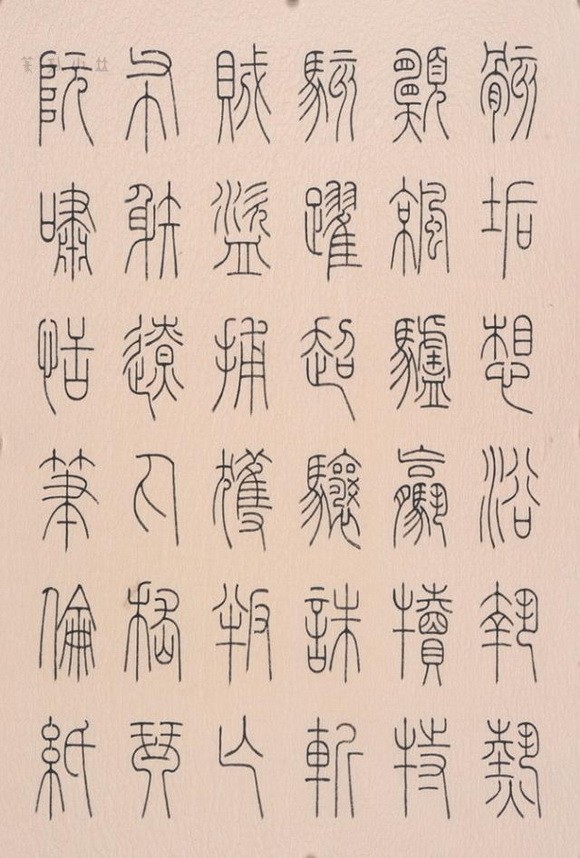 骸垢想浴執熱
願涼驢驘犢特
駭躍超驤誅斬
賊盜捕獲叛亡
布射遼丸嵇琴
阮嘯恬筆倫紙